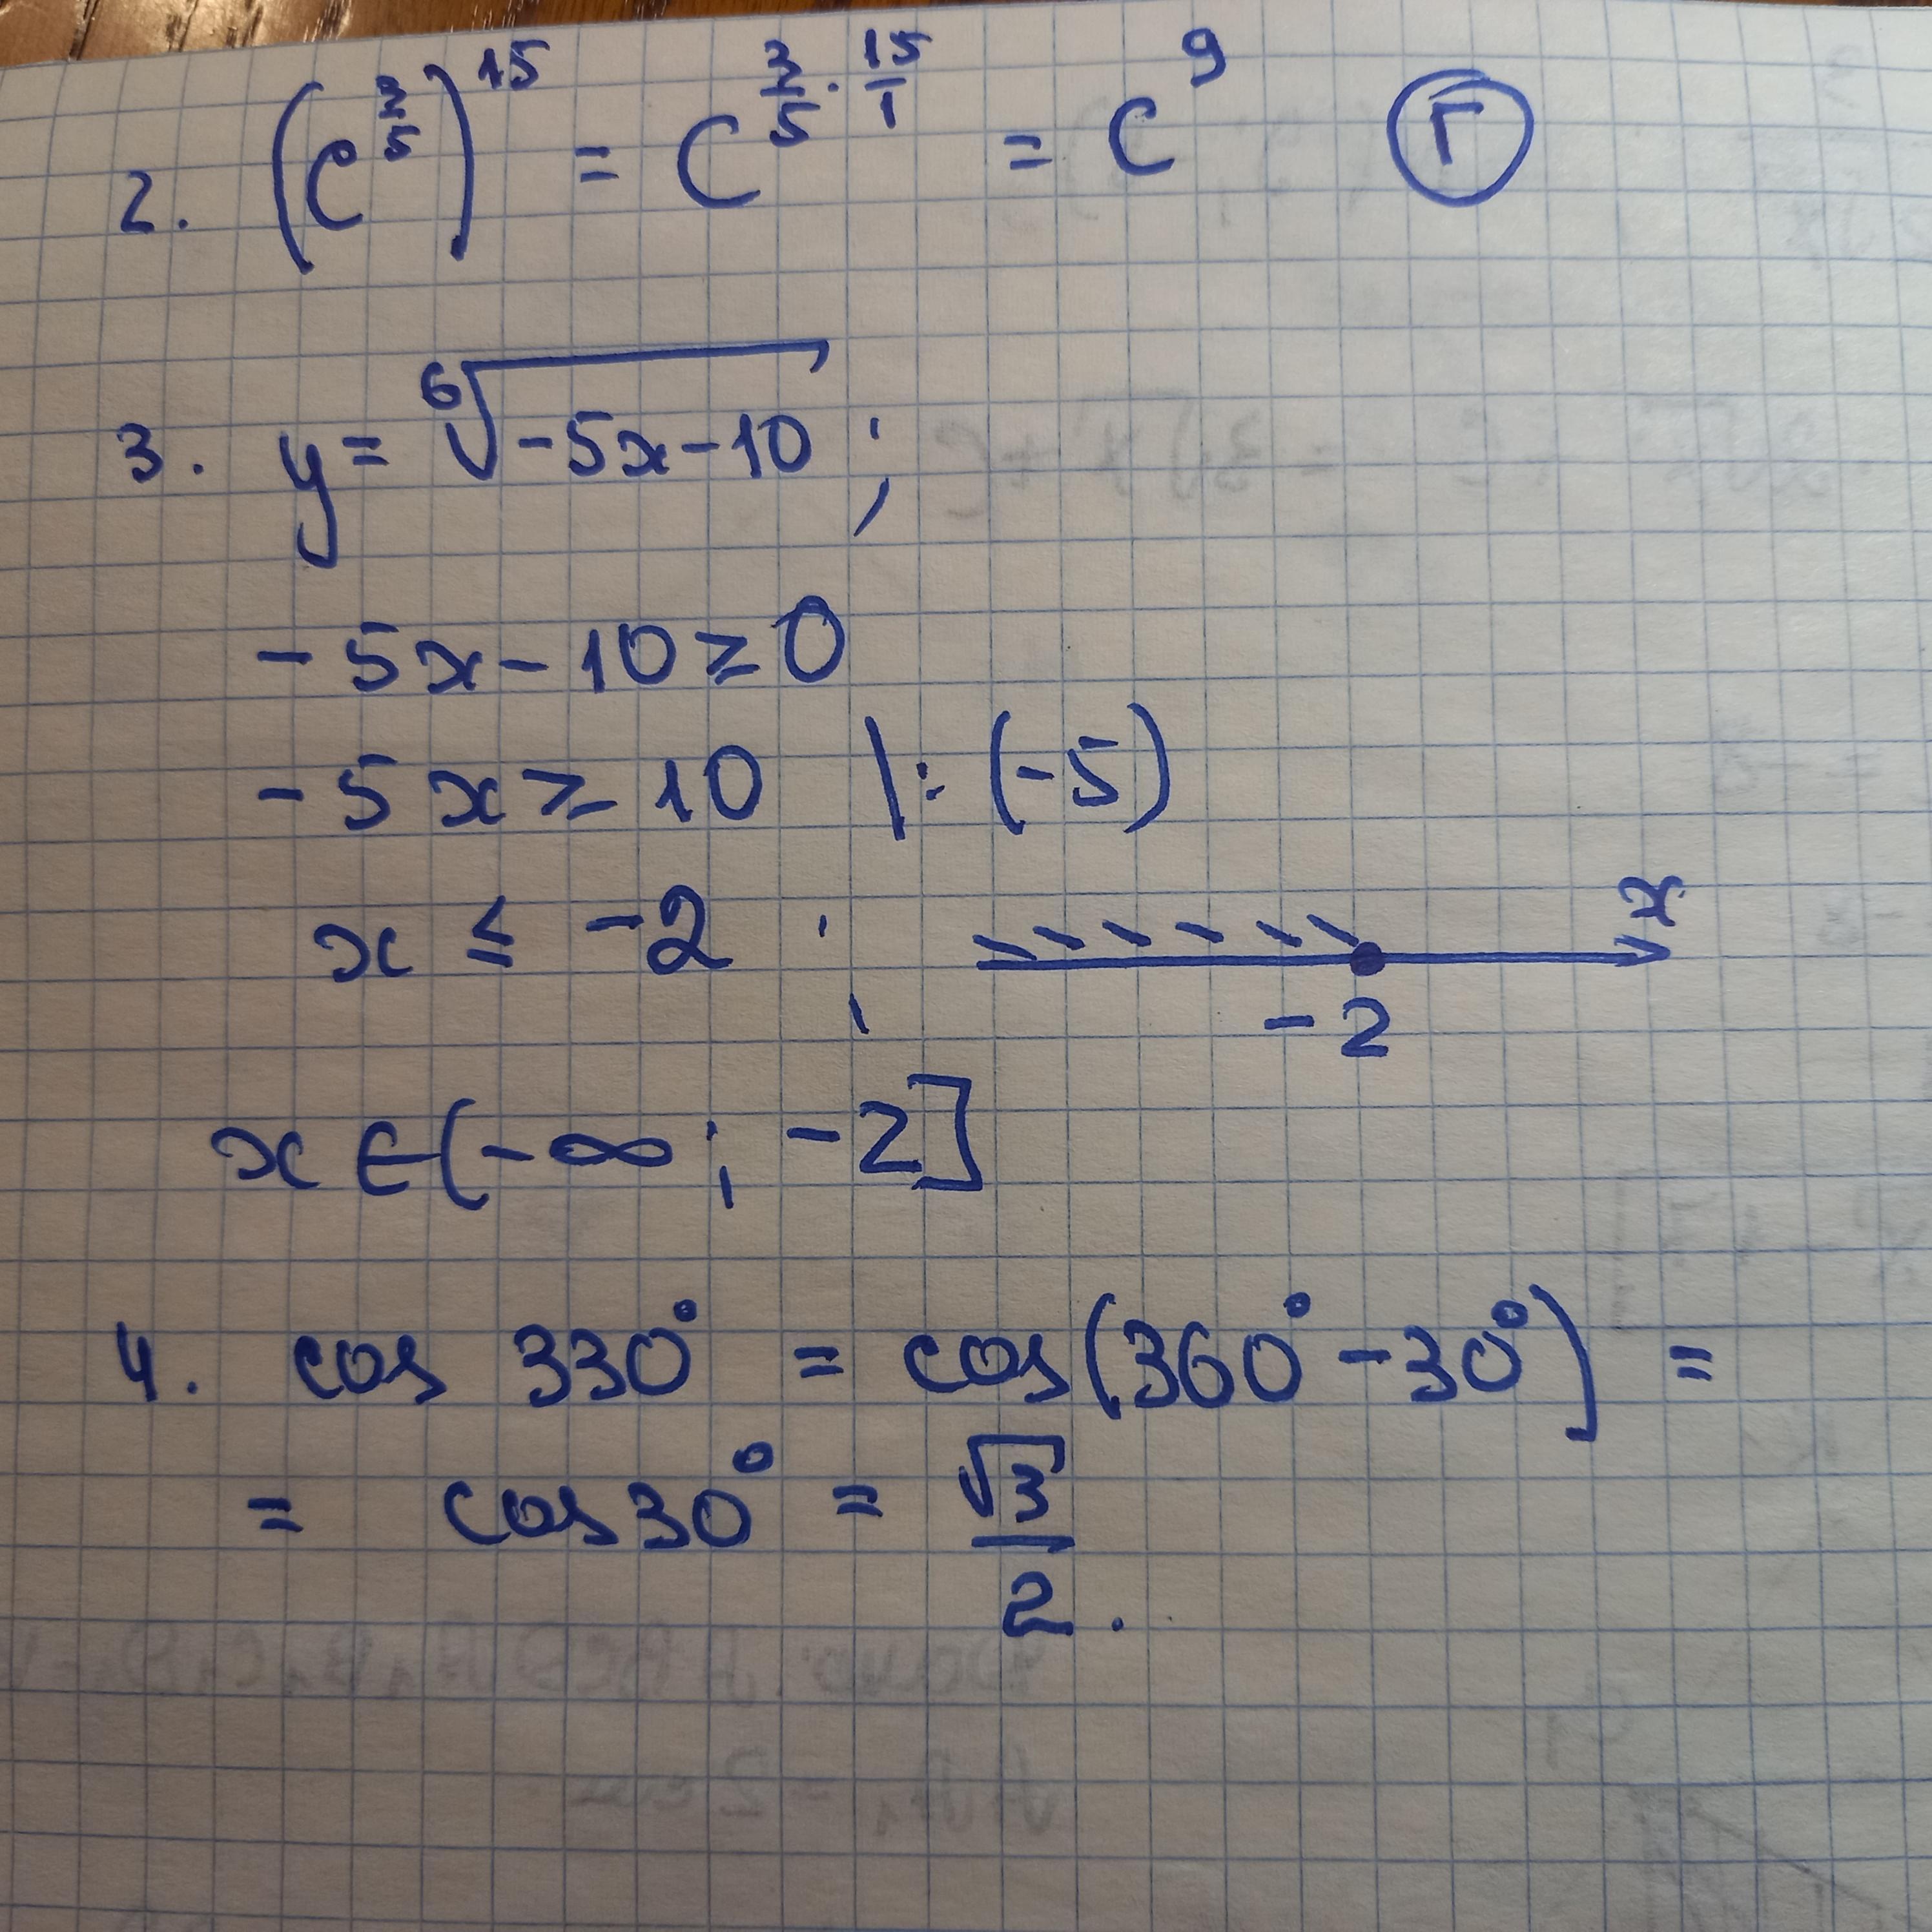 2. (c^{3/5})^{15} = c^{3/5 · 15/1} = c^9 Г
3. y = \sqrt[6]{-5x-10} ;
-5x-10 ≥ 0
-5x ≥ 10 |: (-5)
x ≤ -2 ; x
-2
x ∈ (-∞ ; -2]
4. cos 330° = cos(360° - 30°) =
= cos 30° = \frac{\sqrt{3}}{2}.